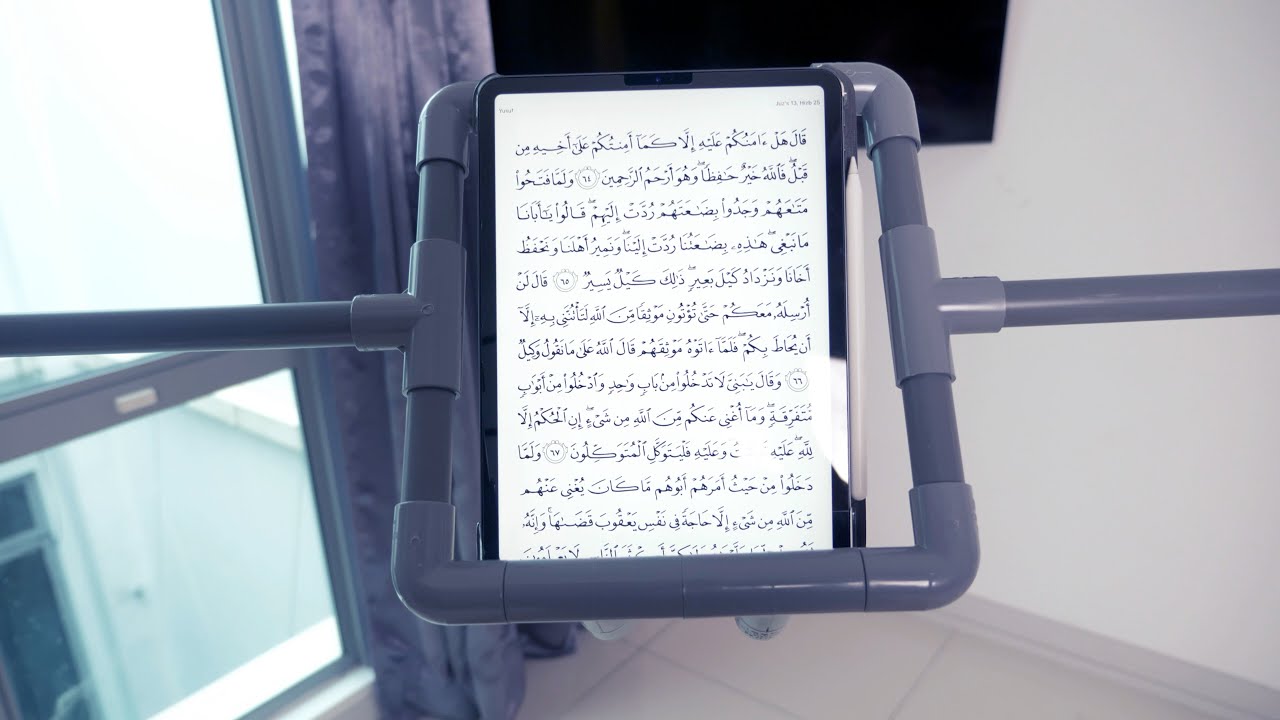 Yusuf
Juz's 13, Hizb 25
قَالَ هَلْ ءَامَنُكُمْ عَلَيْهِ إِلَّا كَمَآ أَمِنتُكُمْ عَلَىٰٓ أَخِيهِ مِن
قَبْلُ ۖ فَٱللَّهُ خَيْرٌ حَـٰفِظًا ۖ وَهُوَ أَرْحَمُ ٱلرَّٰحِمِينَ ٦٤ وَلَمَّا فَتَحُوا۟
مَتَـٰعَهُمْ وَجَدُوا۟ بِضَـٰعَتَهُمْ رُدَّتْ إِلَيْهِمْ ۖ قَالُوا۟ يَـٰٓأَبَانَا
مَا نَبْغِى ۖ هَـٰذِهِۦ بِضَـٰعَتُنَا رُدَّتْ إِلَيْنَا ۖ وَنَمِيرُ أَهْلَنَا وَنَحْفَظُ
أَخَانَا وَنَزْدَادُ كَيْلَ بَعِيرٍ ۖ ذَٰلِكَ كَيْلٌ يَسِيرٌ ٦٥ قَالَ لَنْ
أُرْسِلَهُۥ مَعَكُمْ حَتَّىٰ تُؤْتُونِ مَوْثِقًا مِّنَ ٱللَّهِ لَتَأْتُنَّنِى بِهِۦٓ إِلَّآ
أَن يُحَاطَ بِكُمْ ۖ فَلَمَّآ ءَاتَوْهُ مَوْثِقَهُمْ قَالَ ٱللَّهُ عَلَىٰ مَا نَقُولُ وَكِيلٌ
٦٦ وَقَالَ يَـٰبَنِىَّ لَا تَدْخُلُوا۟ مِنۢ بَابٍ وَٰحِدٍ وَٱدْخُلُوا۟ مِنْ أَبْوَٰبٍ
مُّتَفَرِّقَةٍ ۖ وَمَآ أُغْنِى عَنكُم مِّنَ ٱللَّهِ مِن شَىْءٍ ۖ إِنِ ٱلْحُكْمُ إِلَّا
لِلَّهِ ۖ عَلَيْهِ وَعَلَيْهِ فَلْيَتَوَكَّلِ ٱلْمُتَوَكِّلُونَ ٦٧ وَلَمَّا
دَخَلُوا۟ مِنْ حَيْثُ أَمَرَهُمْ أَبُوهُم مَّا كَانَ يُغْنِى عَنْهُم
مِّنَ ٱللَّهِ مِن شَىْءٍ إِلَّا حَاجَةً فِى نَفْسِ يَعْقُوبَ قَضَىٰهَا ۚ وَإِنَّهُۥ